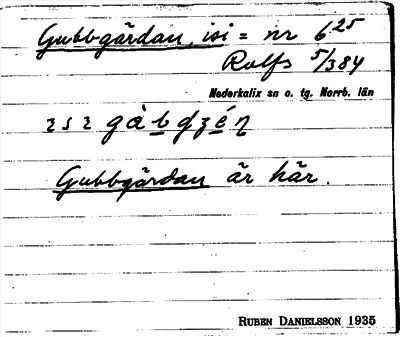 Gubbgärdan, isi = nr 6²⁵
Rolfs 5/3 84
Nederkalix sn o. tg. Norrb. län
Gubbgärdan är här.
RUBEN DANIELSSON 1935